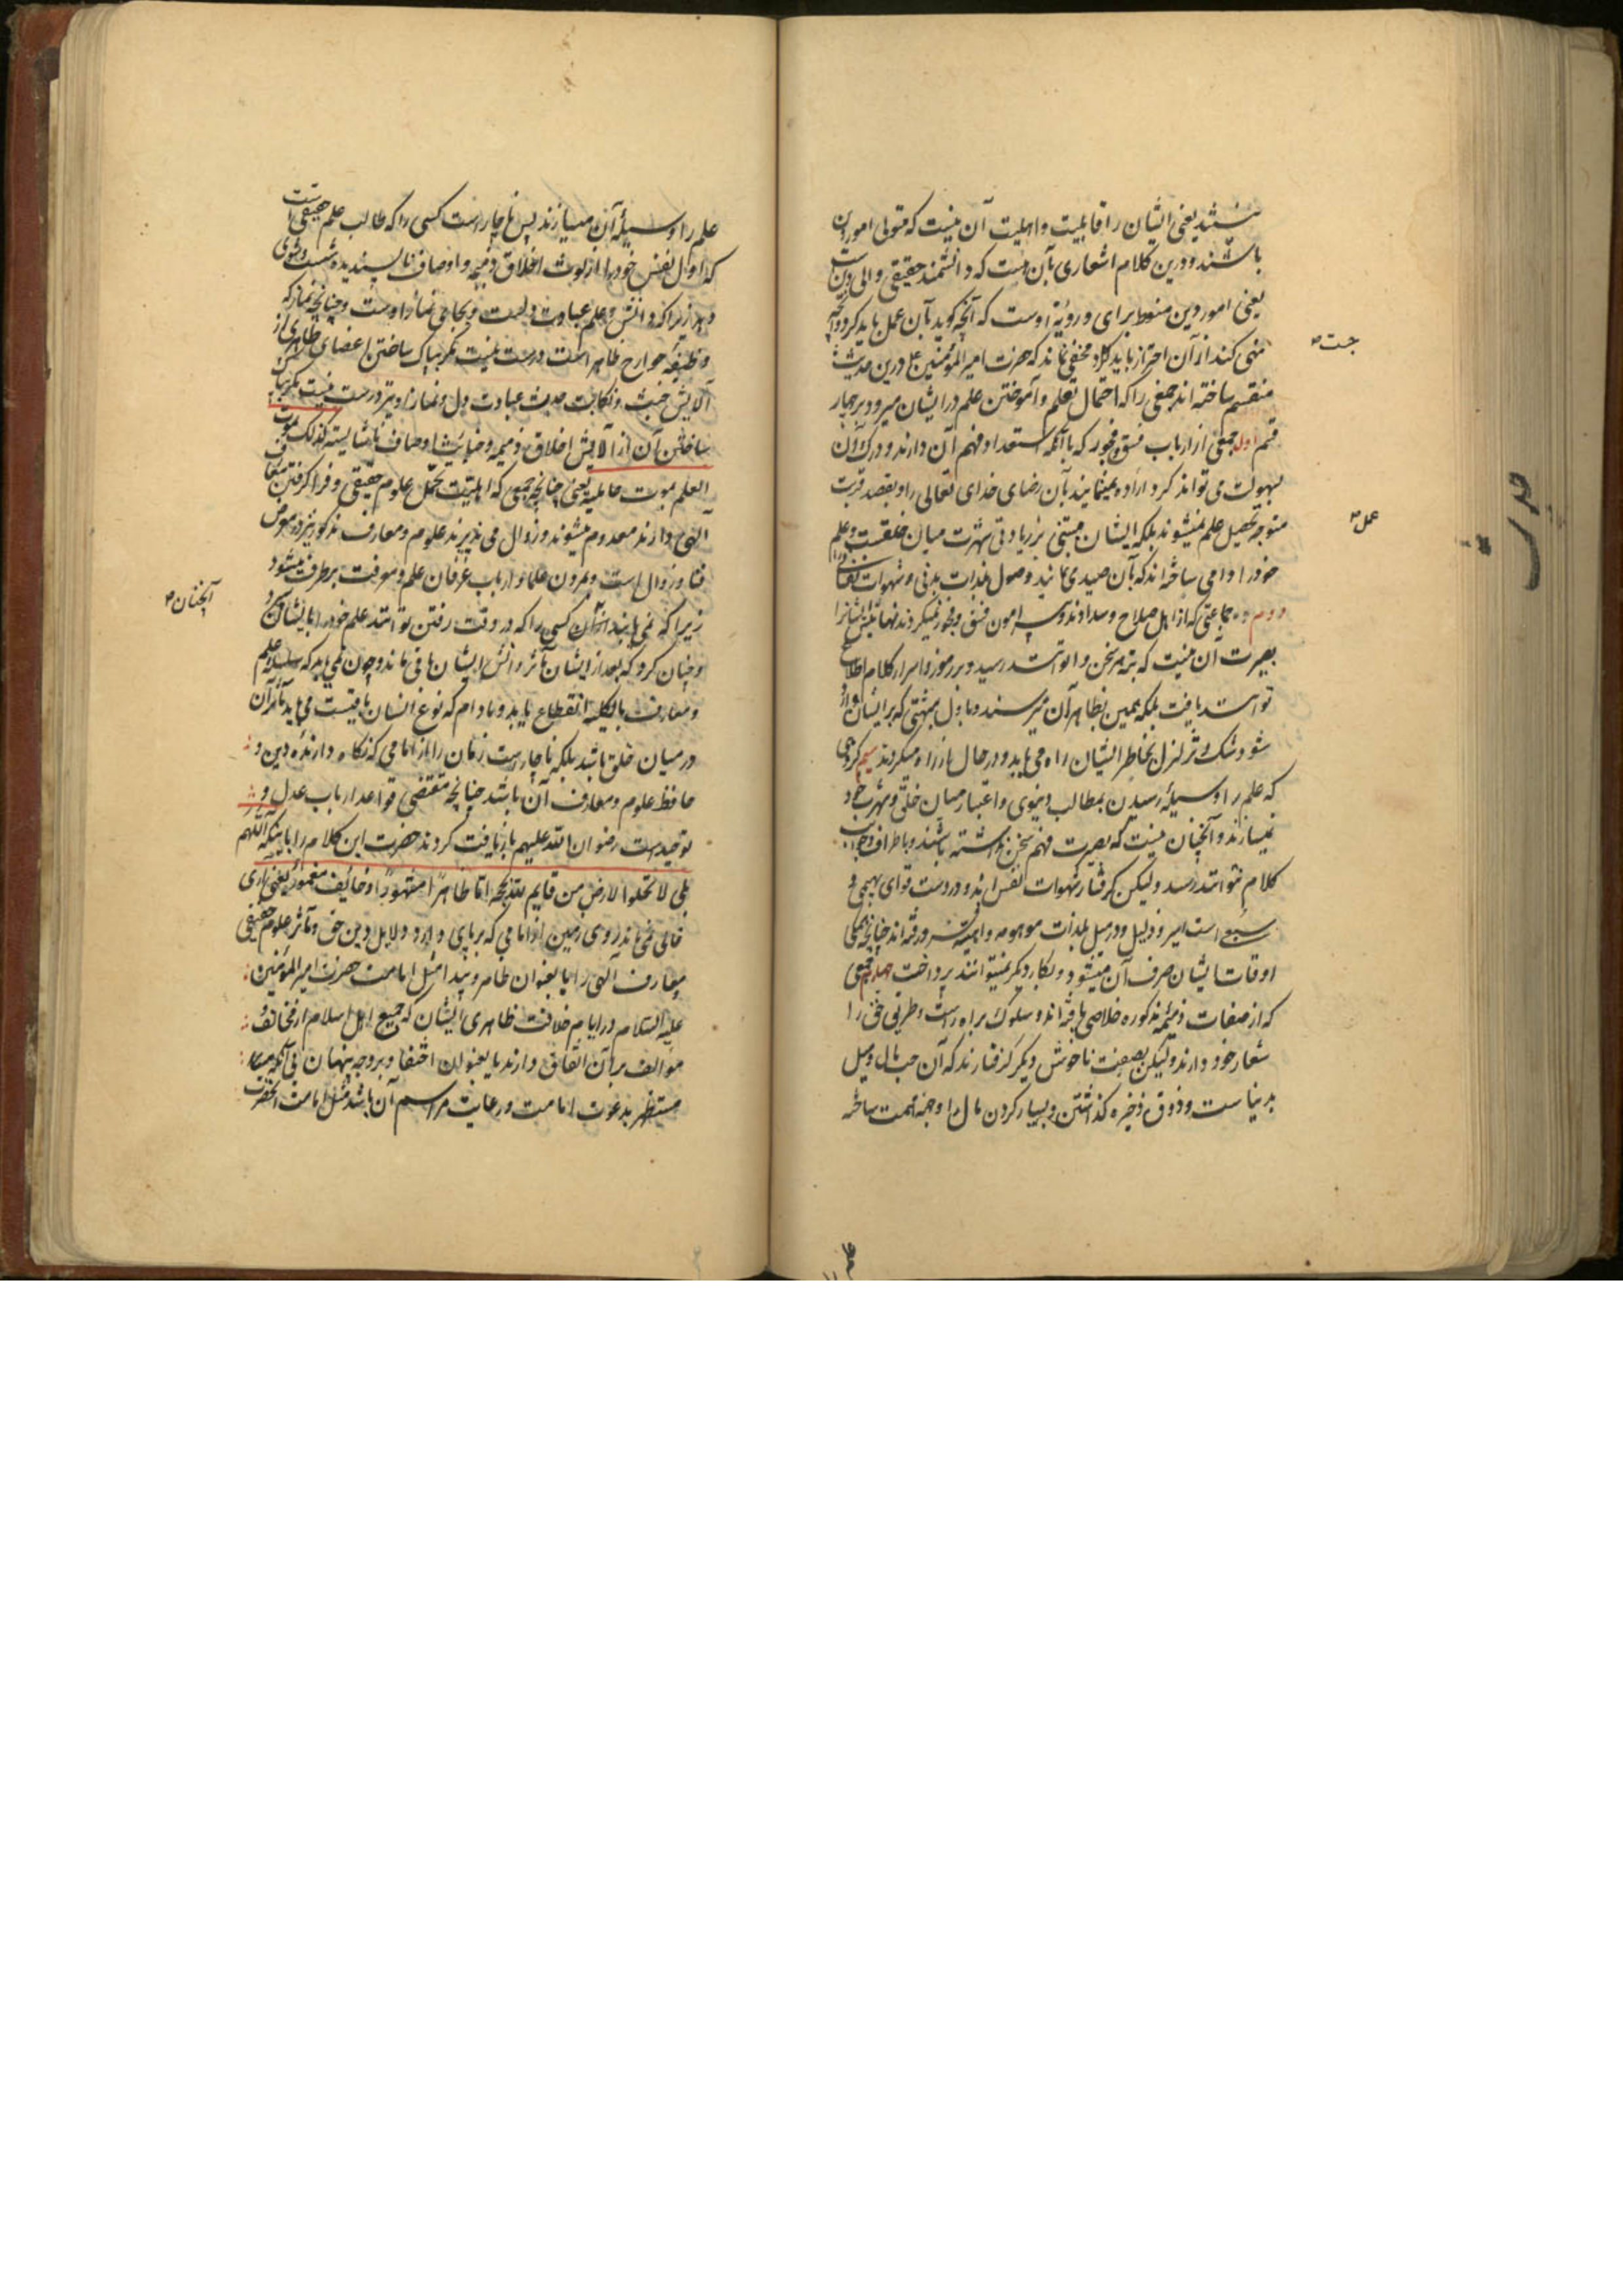 نیستند یعنی ایشان را قابلیت و اهلیت آن نیست که متولی امور دین
باشند و درین کلام اشعاری بآن هست که دانشمند حقیقی والی دین است
یعنی امور دین منوط برای و رویۀ اوست که آنچه گوید بآن عمل باید کرد و از آنچه
منهی کند از آن احتراز باید کرد و مخفی نماند که حضرت امیر المؤمنین علی درین حدیث
منقسم ساخته اند جمعی را که احتمال تعلم و آموختن علم در ایشان میرود بر چهار
قسم اول جمعی از ارباب فسق و فجور که با آنکه استعداد فهم آن دارند و درک آن
بسهولت می توانند کرد اراده نمینمایند بآن رضای خدای تعالی را و بقصد قربت
متوجه تحصیل علم نمیشوند بلکه ایشان مبتنی بر زیادتی شهرت میان خلقست و علم
خود را دامی ساخته اند که بآن صیدی نمایند وصول بلذات بدنی و شهوات نفسانی را
دوم جماعتی که از اهل صلاح و سدادند و پیرامون فسق و فجور نمیگردند نهایتش ایشانرا
بصیرت آن نیست که بته هر سخن توانند رسید و بر رموز و اسرار کلام اطلاع
توانند یافت بلکه همین بظاهر آن میرسند و باول شبهتی که بر ایشان وارد
شود شک و تزلزل بخاطر ایشان راه می یابد و در حال از راه میگردند سیم گروهی
که علم را وسیلۀ رسیدن بمطالب دنیوی و اعتبار میان خلق و شهرت خود
نمیسازند و آنچنان نیست که بصیرت فهم سخن نداشته باشند و باطراف و جوانب
کلام نتوانند رسید و لیکن گرفتار شهوات نفس اند و در دست قوای بهیمی و
سبعی است اسیر و ذلیل و در میل بلذات موهومه واهیه فرو رفته اند چنانچه همگی
اوقات ایشان صرف آن میشود و بکار دیگر نمیتوانند پرداخت چهارم جمعی
که از صفات ذمیمۀ مذکوره خلاصی یافته اند و سلوک براه راست و طریق حق را
شعار خود دارند و لیکن بصفت ناخوش دیگر گرفتارند که آن حب مال و میل
بدنیاست و ذوق ذخیره گذاشتن و بسیار کردن مال را وجهۀ همت ساخته
جست
عمل
علم را وسیلۀ آن میسازند پس ناچار است کسی را که طالب علم حقیقی است
که اول نفس خود را از لوث اخلاق ذمیمه و اوصاف ناپسندیده شست و شوی
دهد زیرا که دانش و علم عبادت دلست و بجای نماز اوست و چنانچه نماز که
وظیفۀ جوارح ظاهر است درست نیست مگر بپاک ساختن اعضای ظاهری از
آلایش خبث و نکابت حدث عبادت دل و نماز او نیز درست نیست مگر بپاک
ساختن آن از آلایش اخلاق ذمیمه و خبایث اوصاف ناشایسته کذلک یموت
العلم بموت حاملیه یعنی چنانچه جمعی که اهلیت تحمل علوم حقیقی و فرا گرفتن معارف
الهی دارند معدوم میشوند و زوال می پذیرند علوم و معارف مذکور نیز در معرض
فنا و زوال است و بمردن علما و ارباب عرفان علم و معرفت برطرف میشود
زیرا که نمی یابند آنچنان کسی را که در وقت رفتن توانند علم خود را بایشان سپرد
و چنان کرد که بعد از ایشان مآثر دانش ایشان باقی ماند و چون نمی باید که سلسلۀ علم
و معارف بالکلیه انقطاع یابد و مادام که نوع انسان باقیست می باید مآثر آن
در میان خلق باشد بلکه ناچار است زمان را از امامی که نگاه دارندۀ دین و
حافظ علوم و معارف آن باشد چنانچه مقتضی قواعد ارباب عدل و
توحید است رضوان الله علیهم باز یافت کردند حضرت این کلام را باینکه اللهم
بلی لا تخلوا الارض من قایم لله بحجه اما ظاهرا مشهورا او خائف مغمور یعنی باری
خالی نمی ماند روی زمین از امامی که برپای دارد دلایل دین حق و مآثر علوم حقیقی
معارف الهی را یا بعنوان ظاهر و پیدا مثل امامت حضرت امیر المؤمنین
علیه السلام در ایام خلافت ظاهری ایشان که جمیع اهل اسلام از مخالف و
موالف بر آن اتفاق دارند یا بعنوان اختفا و بر وجه پنهان بی آنکه
مستظهر بدعوت امامت و رعایت مراسم آن باشد مثل امامت آنحضرت
آنچنان